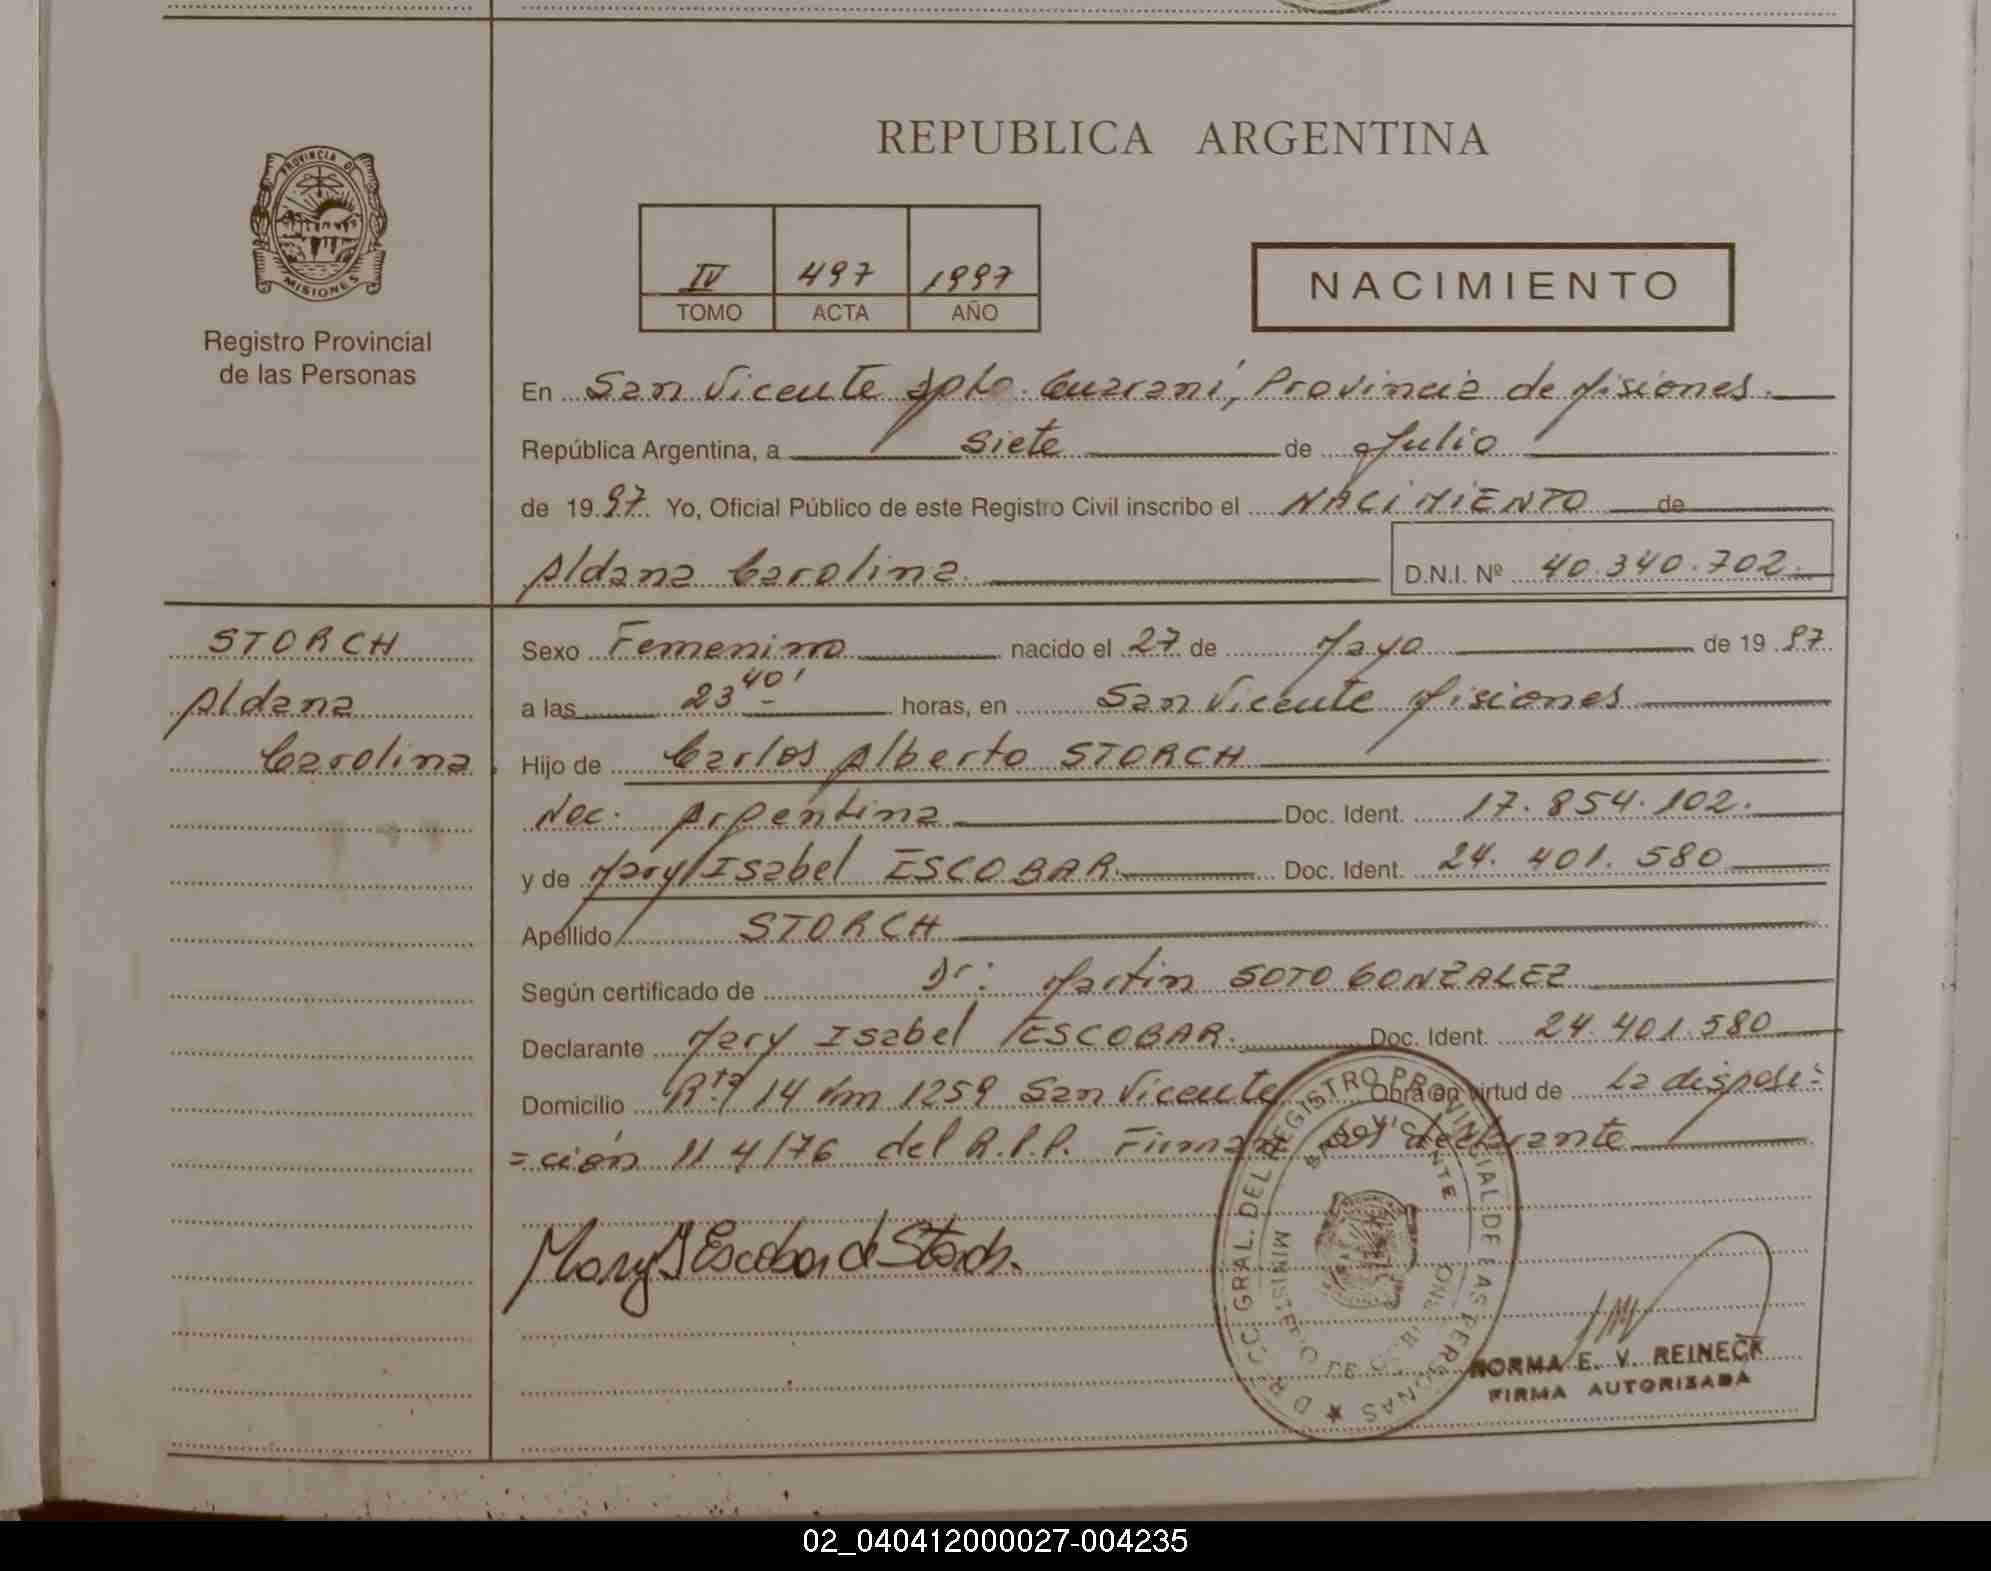 REPUBLICA ARGENTINA
PROVINCIA DE
MISIONES
Registro Provincial
de las Personas
IV 497 1997
TOMO ACTA AÑO
NACIMIENTO
En San Vicente Dpto. Guaraní, Provincia de Misiones.
República Argentina, a siete de Julio
de 1997. Yo, Oficial Público de este Registro Civil inscribo el NACIMIENTO de
Aldana Carolina. D.N.I. Nº 40.340.702.
STORCH
Aldana
Carolina.
Sexo Femenino nacido el 27 de Mayo de 1997.
a las 23 40' horas, en San Vicente Misiones
Hijo de Carlos Alberto STORCH
Nac. Argentina Doc. Ident. 17.854.102.
y de Mary Isabel ESCOBAR. Doc. Ident. 24.401.580
Apellido STORCH
Según certificado de Dr: Martin SOTO GONZALEZ
Declarante Mary Isabel ESCOBAR. Doc. Ident. 24.401.580
Domicilio Rta 14 km 1259 San Vicente Obra en virtud de La disposi=
=ción 114/76 del R.P.P. Firman declarante
Mary I Escobar de Storch.
DIRECC. GRAL. DEL REGISTRO PROVINCIAL DE LAS PERSONAS
SAN VICENTE
MINISTERIO DE GOBIERNO
NORMA E. V. REINECK
FIRMA AUTORIZADA
02_040412000027-004235